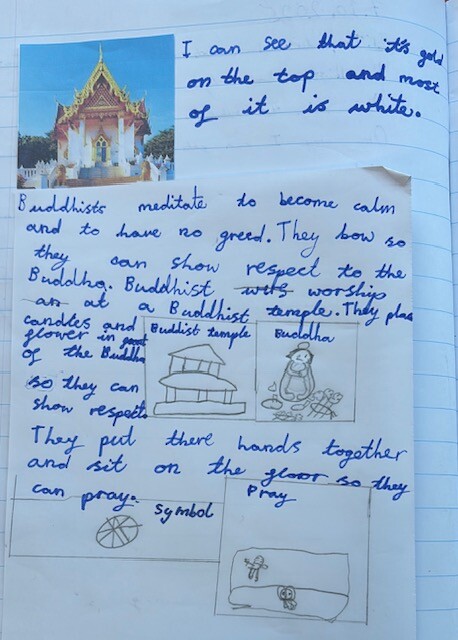 I can see that it's gold
on the top and most
of it is white.
Buddhists meditate to become calm
and to have no greed. They bow so
they can show respect to the
Buddha. Buddhist worship
at a Buddhist temple. They place
candles and
flower in front
of the Buddha
so they can
show respect.
Buddist temple
Buddha
They put there hands together
and sit on the floor so they
can pray.
Symbol
Pray